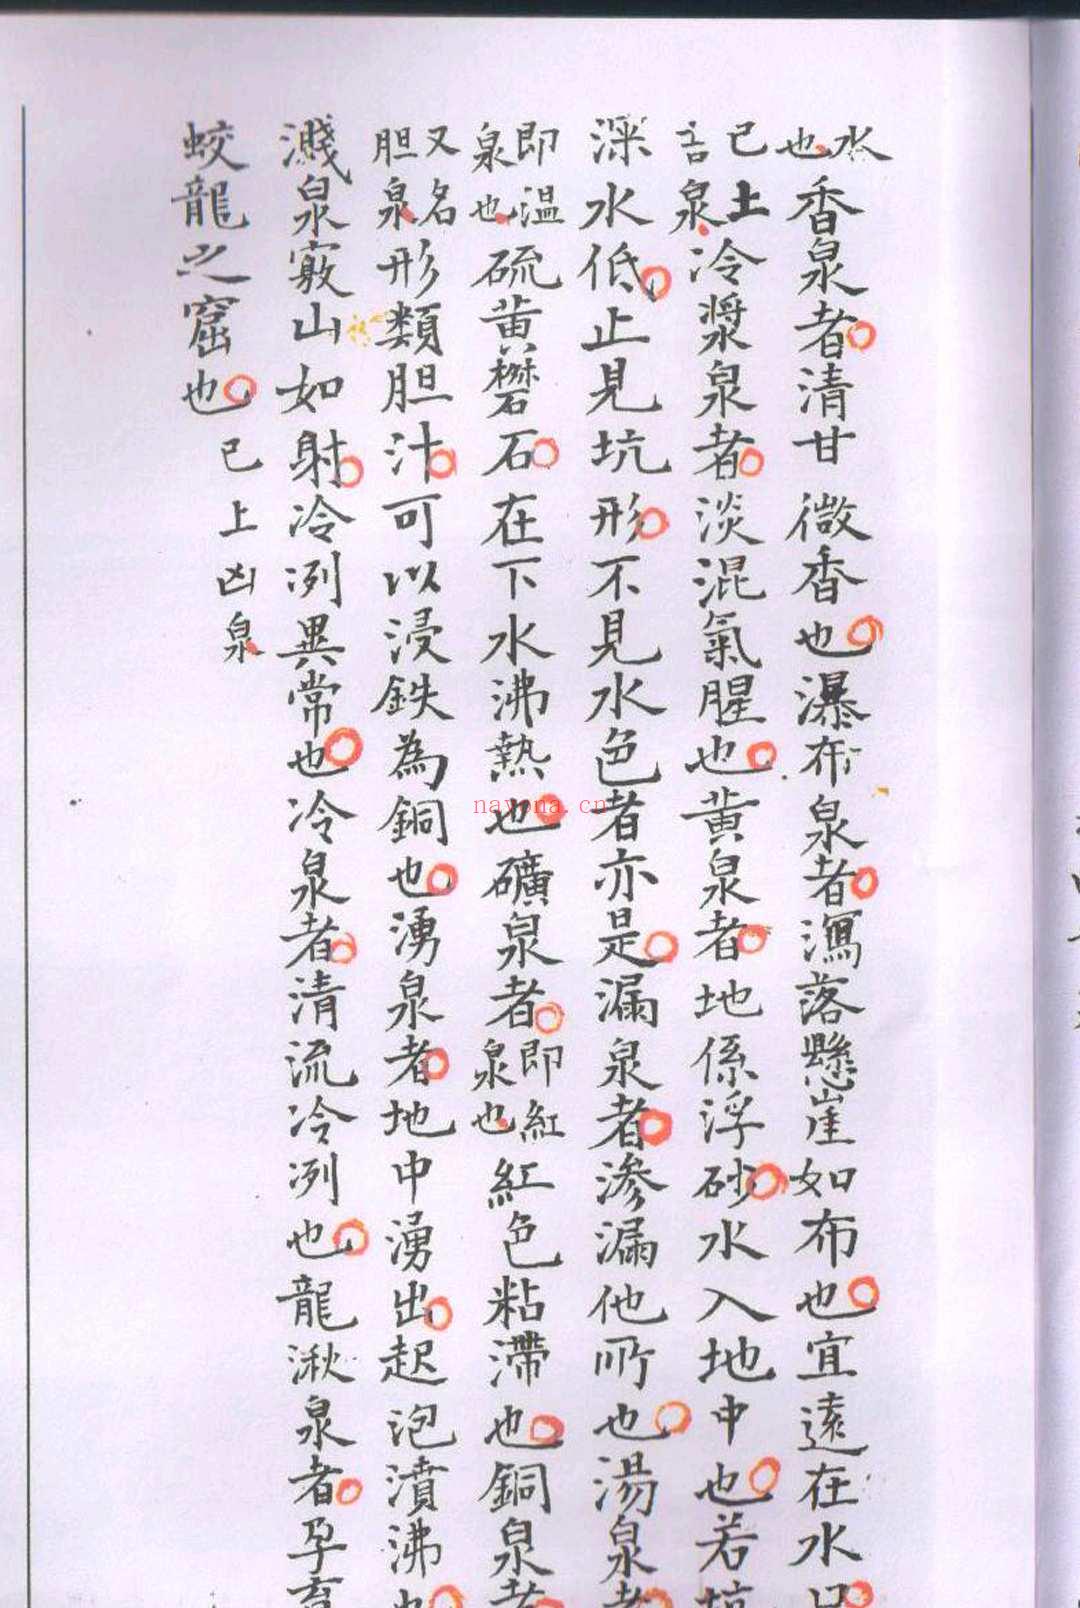 水也香泉者清甘微香也瀑布泉者瀉落懸崖如布也宜遠在水口
已上吉泉冷漿泉者淡混氣腥也黃泉者地係浮砂水入地中也若坑
深水低止見坑形不見水色者亦是漏泉者渗漏他所也湯泉者
即温泉也硫黃礬石在下水沸熱也礦泉者即紅泉也紅色粘滯也銅泉者
又名胆泉形類胆汁可以浸鉄為銅也湧泉者地中湧出起泡濆沸也
濺泉竅山如射冷冽異常也冷泉者清流冷冽也龍湫泉者孕育
蛟龍之窟也已上凶泉
nayona.cn